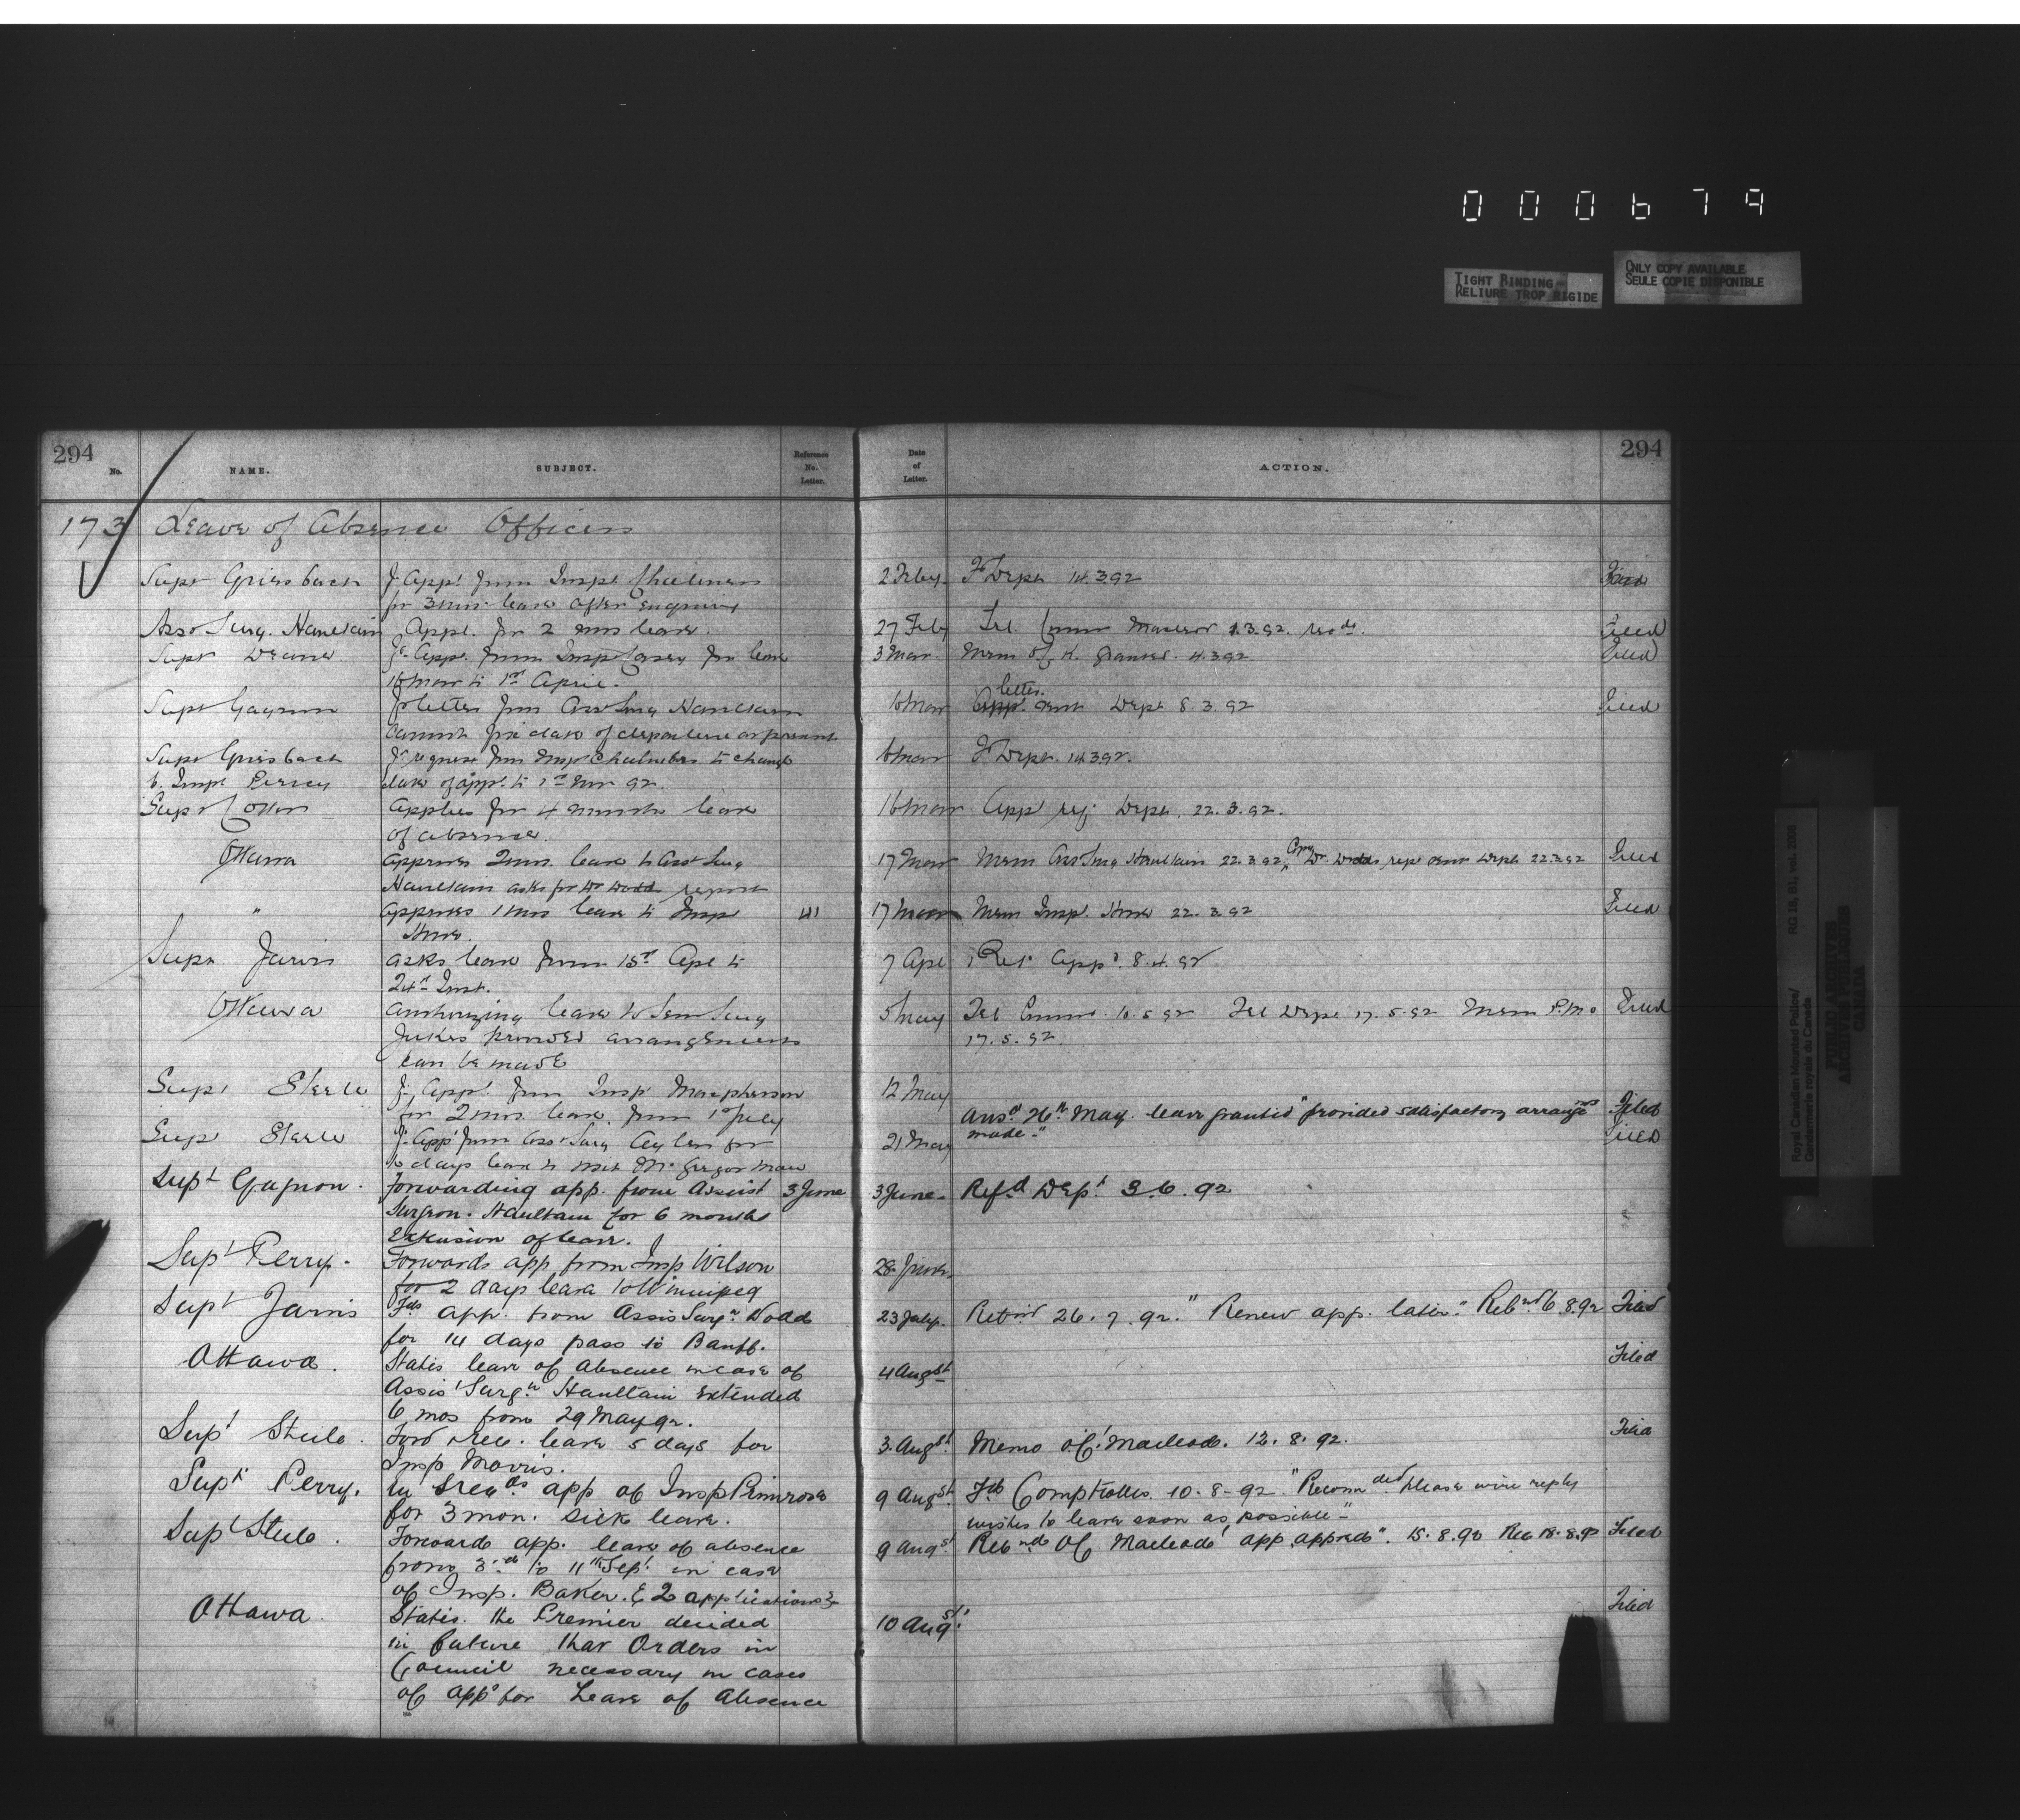 000679
TIGHT BINDING
RELIURE TROP RIGIDE
ONLY COPY AVAILABLE
SEULE COPIE DISPONIBLE
294
No.
NAME.
SUBJECT.
Reference
No.
Letter.
Date
of
Letter.
ACTION.
294
173 Leave of Absence Officers
Supt Griesbach F. Appt from Inspr Chalmers 2 Feby F Dept 14.3.92 Filed
for 3 mos. leave after expiring
Asst Surg. Haultain Appl. for 2 mos leave. 27 Feb Tel. 1.3.92 Filed
Supt Deane F. App. from Insp Casey for leave 3 Mar Mem Of K. granted 4.3.92 Filed
16 Mar to 1st April.
Supt Gagnon F letter from Asst Surg Haultain 16 Mar letter App. sent Dept 8.3.92 Filed
Cannot fix date of departure at present
Supt Griesbach F. request from Insp Chalmers to change 6 Mar F Dept. 14.3.92.
date of app. to 1st 92.
Supt Cotton Applies for 4 months leave 16 Mar App rej. Dept. 22.3.92.
of absence.
Ottawa Approves 2 mos. leave to Asst Surg 17 Mar Mem Asst Surg Haultain 22.3.92, Copy Dr. Dodds rept sent Dept 22.3.92 Filed
Haultain asks for Dr Dodd report
" Approves 1 mos leave to Insp 17 Mar Mem Insp. 22.3.92 Filed
Supt Jarvis Asks leave from 15th Apl to 7 Apl Ret. App'd. 8.4.92
24th Inst.
Ottawa Authorizing leave to Sen Surg 5 May Tel Comm. 10.5.92 Tel Dept 17.5.92 Mem P.M.O Filed
Jukes provided arrangements 17.5.92
can be made
Supt Steele F. Appl. from Insp Macpherson 12 May
for 2 mos leave from 1st July Ansd 26th May. leave granted "provided satisfactory arrangemts Filed
Supt Steele F. App from Asst Surg Aylen for 21 May made." Filed
10 days leave to visit McGregor
Supt Gagnon. Forwarding app. from Assist 3 June 3 June. Refd Dept 3.6.92
Surgeon. Haultain for 6 months
Extension of leave.
Supt Perry. Forwards app from Insp Wilson 28 June
for 2 days leave to Winnipeg
Supt Jarvis Fds app. from Assis Surgn. Dodd 23 July. Retnd 26.7.92. "Renew app. later." 6.8.92 Filed
for 14 days pass to Banff.
Ottawa. States leave of absence in case of 4 Augst Filed
Assist Surgn Haultain extended
6 mos from 29 May 92.
Supt Steele. Ford & Rec. leave 5 days for 3 Augst Memo O.C. Macleod. 12.8.92. Filed
Insp Morris.
Supt Perry. app of Insp Primrose 9 Augst Fd Comptroller 10-8-92 "Recommded please wire reply
for 3 mon. sick leave. wishes to leave soon as possible"
Supt Steele. Forwards app. leave of absence 9 Augst OC. Macleod "app apprvd". 15.8.92 Rec 18.8.92 Filed
from 3rd to 11th Sept in case
of Insp. Baker. & 2 applications
Ottawa. States. the Premier decided 10 Augst. Filed
in future that Orders in
Council necessary in cases
of apps for Leave of Absence
Royal Canadian Mounted Police/ RG 18, B1, vol. 2006
Gendarmerie royale du Canada
PUBLIC ARCHIVES
ARCHIVES PUBLIQUES
CANADA